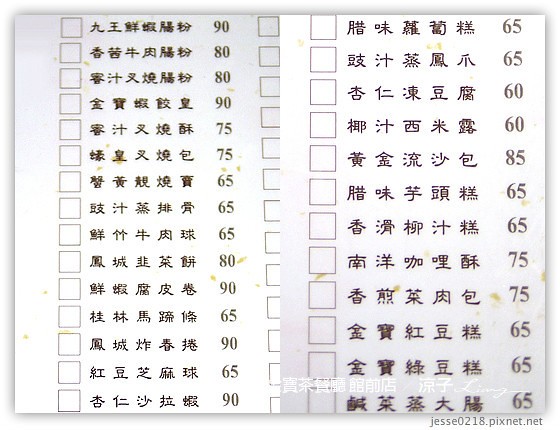 九王鮮蝦腸粉 90
香茜牛肉腸粉 80
蜜汁叉燒腸粉 80
金寶蝦餃皇 90
蜜汁叉燒酥 75
蠔皇叉燒包 75
蟹黃靚燒賣 65
豉汁蒸排骨 65
鮮竹牛肉球 65
鳳城韭菜餅 80
鮮蝦腐皮卷 90
桂林馬蹄條 65
鳳城炸春捲 90
紅豆芝麻球 65
杏仁沙拉蝦 90
腊味蘿蔔糕 65
豉汁蒸鳳爪 65
杏仁凍豆腐 60
椰汁西米露 60
黃金流沙包 85
腊味芋頭糕 65
香滑椰汁糕 65
南洋咖哩酥 75
香煎菜肉包 75
金寶紅豆糕 65
金寶綠豆糕 65
鹹菜蒸大腸 65
寶茶餐廳 館前店 涼子 Ling
jesse0218.pixnet.net